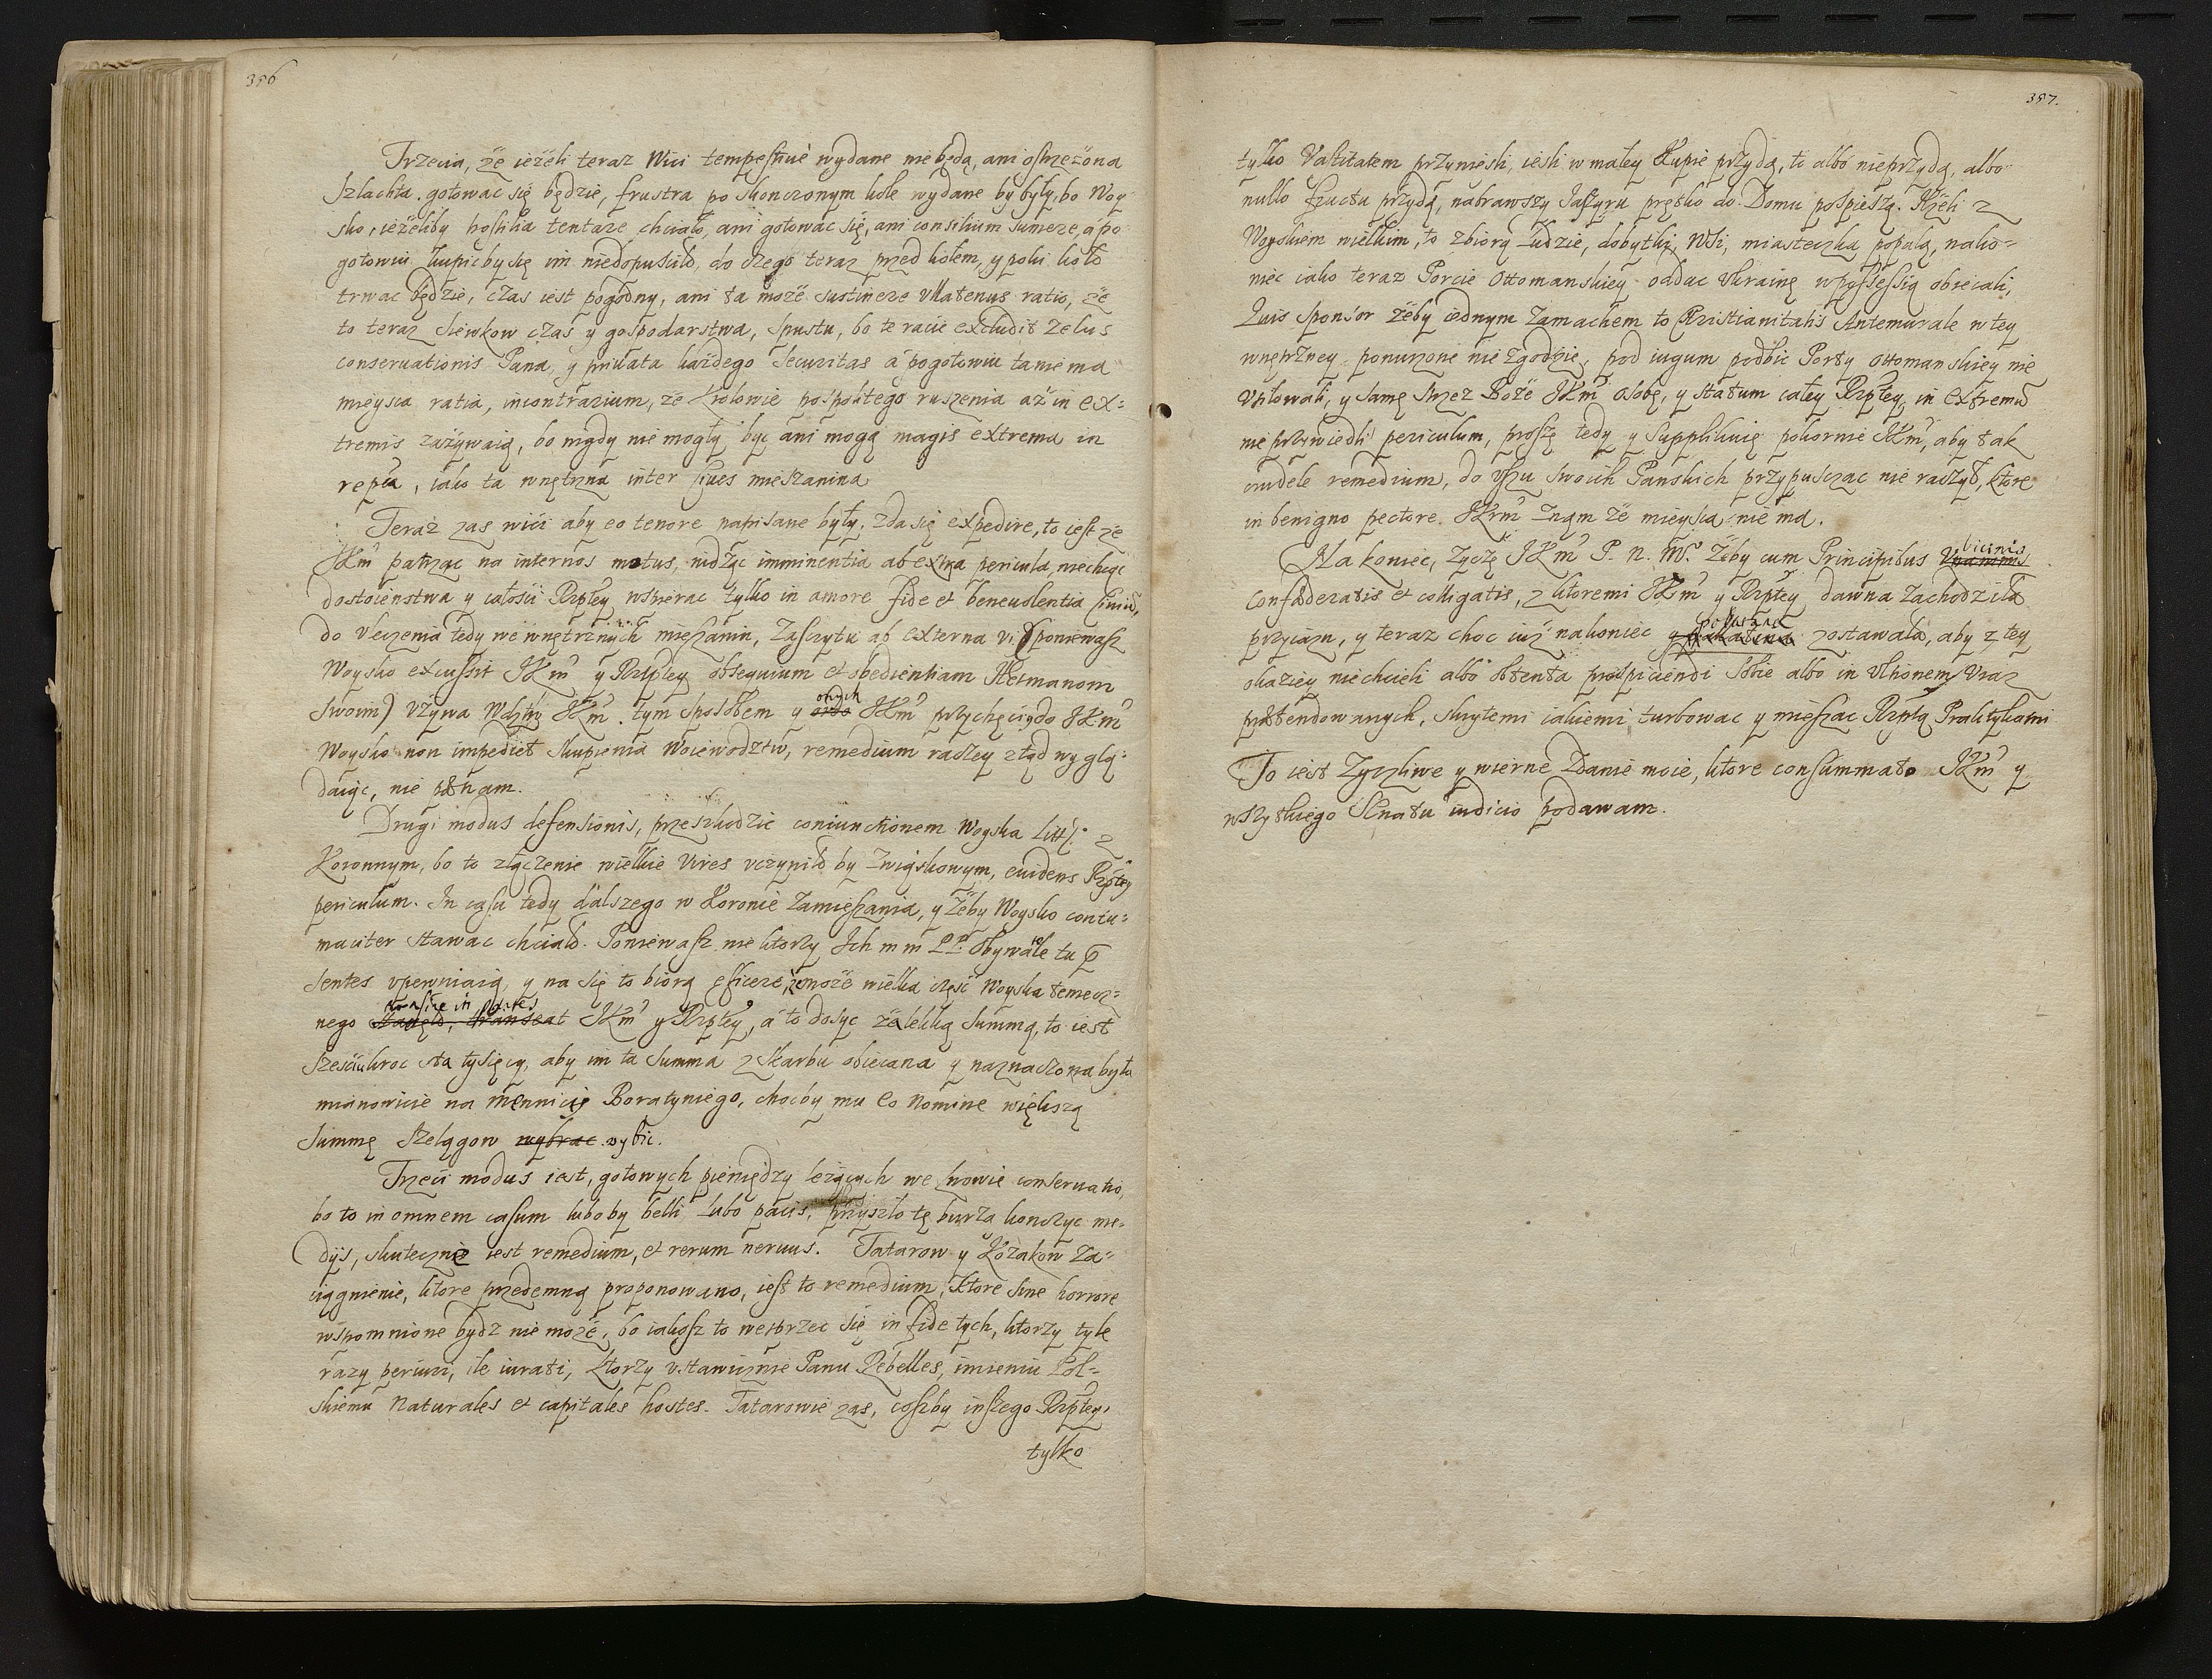 356
Trzecia, że ieżeli teraz Wici tempestiuè wydane nie będą, ani ostrzeżona
Szlachta gotowac się będzie, frustra po skonczonym kole wydane by były, bo Woy
sko, ieżeliby hostilia tentare chciało, ani gotowac się, ani consilium sumere, a po
gotowiu kupic by się im niedopuscило, do czego teraz przed kołem, y poki koło
trwac będzie, czas iest pogodny, ani ta może sustinere vllatenus ratio, że
to teraz siewkow czas y gospodarstwa, spustu, bo te racie excludit zelus
conseruationis Pana, y priuata każdego securitas a pogotowiu ta nie ma
mieysca ratia, incontrarium, że Krolowie pospolitego ruszenia aż in ex=
tremis zażywaią, bo nigdy nie mogły byc ani mogą magis extrema in
repca, iako ta wnętrzna inter Ciues mieszanina
Teraz zas wici aby eo tenore napisane były, zda się expedire, to iest że
JKm patrząc na internos motus, widząc imminentia ab extra pericula, niechcąc
dostoienstwa y całosci Rzptey wspierac tylko in amore fide et beneuolentia Ciuiu,
do vleczenia tedy wewnętrznych mieszanin, Zasczytu ab externa vi (poniewasz
Woysko excussit JKm y Rzptey obsequium et obedientiam Hetmanom
swoim) vżywa JKm. tym sposobem y ordo onych JKm przychęci, y do JKm
Woysko non impediet skupienia woiewodztw, remedium raczey ztąd wyglą=
daiąc, nie
Drugi modus defensionis, przeszkodzic coniunctionem Woyska Litt: z
Koronnym, bo to złączenie wielkie vires vczyniło by Związkowym, euidens Rzptey
periculum. In casu tedy dalszego w Koronie zamieszania, y żeby Woysko contu=
maciter stawac chciało. Poniewasz niektorzy Ich mm PP. Obywatele tu p
sentes vpewniaią, y na się to biorą efficere, że może wielka częsc Woyska tamecz=
nego transire in partes JKm y Rzptey, a to dosyc za lekką summą, to iest
szesciukroc sta tysięcy, aby im ta summa z skarbu obiecana y naznaczona była
mianowicie na mennicie Boratyniego, chocby mu eo nomine większą
summę szelągow wybrac wybic.
Trzeci modus iest, gotowych pieniędzy leżących we Lwowie conseruatio,
bo to in omnem casum luboby belli lubo pacis, przyszło tę burza konczyc me=
dijs, skuteczne iest remedium, et rerum neruus. Tatarow y Kozakow Za=
ciągnienie, ktore przedemną proponowano, iest to remedium, ktore sine horrore
wspomnione bydz nie może, bo iakosz to wesprzec się in fide tych, ktorzy tyle
razy periuri, ile iurati, ktorzy vstawicznie Panu Rebelles, imieniu Pol=
skiemu Naturales et capitales hostes. Tatarowie zas, coszby inszego Rzptey,
tylko
357.
tylko Vastitatem przyniesli, iesli w małey Kupie przydą, to albo nieprzydą, albo
nullo fructu przydą, nabrawszy Jassyru prętko do Domu pospieszą. Jeżeli z
Woyskiem wielkim, to zbiorą Ludzie, dobytki, Wsi, miasteczka popalą, nako=
niec iako teraz Porcie Ottomanskiey oddac Vkrainę w possessią obiecali,
Quis sponsor żeby iednym zamachem to Christianitatis Antemurale w tey
wnętrzney ponurzone nie zgodzie, pod iugum podbic Porty Ottomanskiey nie
vsiłowali, y samę strzeż Boże JKm osobę, y statum całey Rzptey, in extremu
nie przywiedli periculum, proszę tedy y supplikuię pokornie JKm, aby tak
crudele remedium, do vszu swoich Panskich przypusczac nie raczył, ktore
in benigno pectore JKm znam że mieysca nie ma.
Na koniec, życzę JKm P. N. Mo. żeby cum Principibus vicinis
confæderatis et colligatis, z ktoremi JKm y Rzptey dawna zachodziła
przyiazn, y teraz choc iuż nakoniec zostawała, aby z tey
okaziey niechcieli albo obtenta prospiciendi sobie albo in vltionem Vraz
prætendowanych, skrytemi iakiemi turbowac y mieszac Rzptą Praktykami
To iest Zyczliwe y wierne Zdanie moie, ktore consummato JKm y
wszytkiego Senatu iudicio podawam.